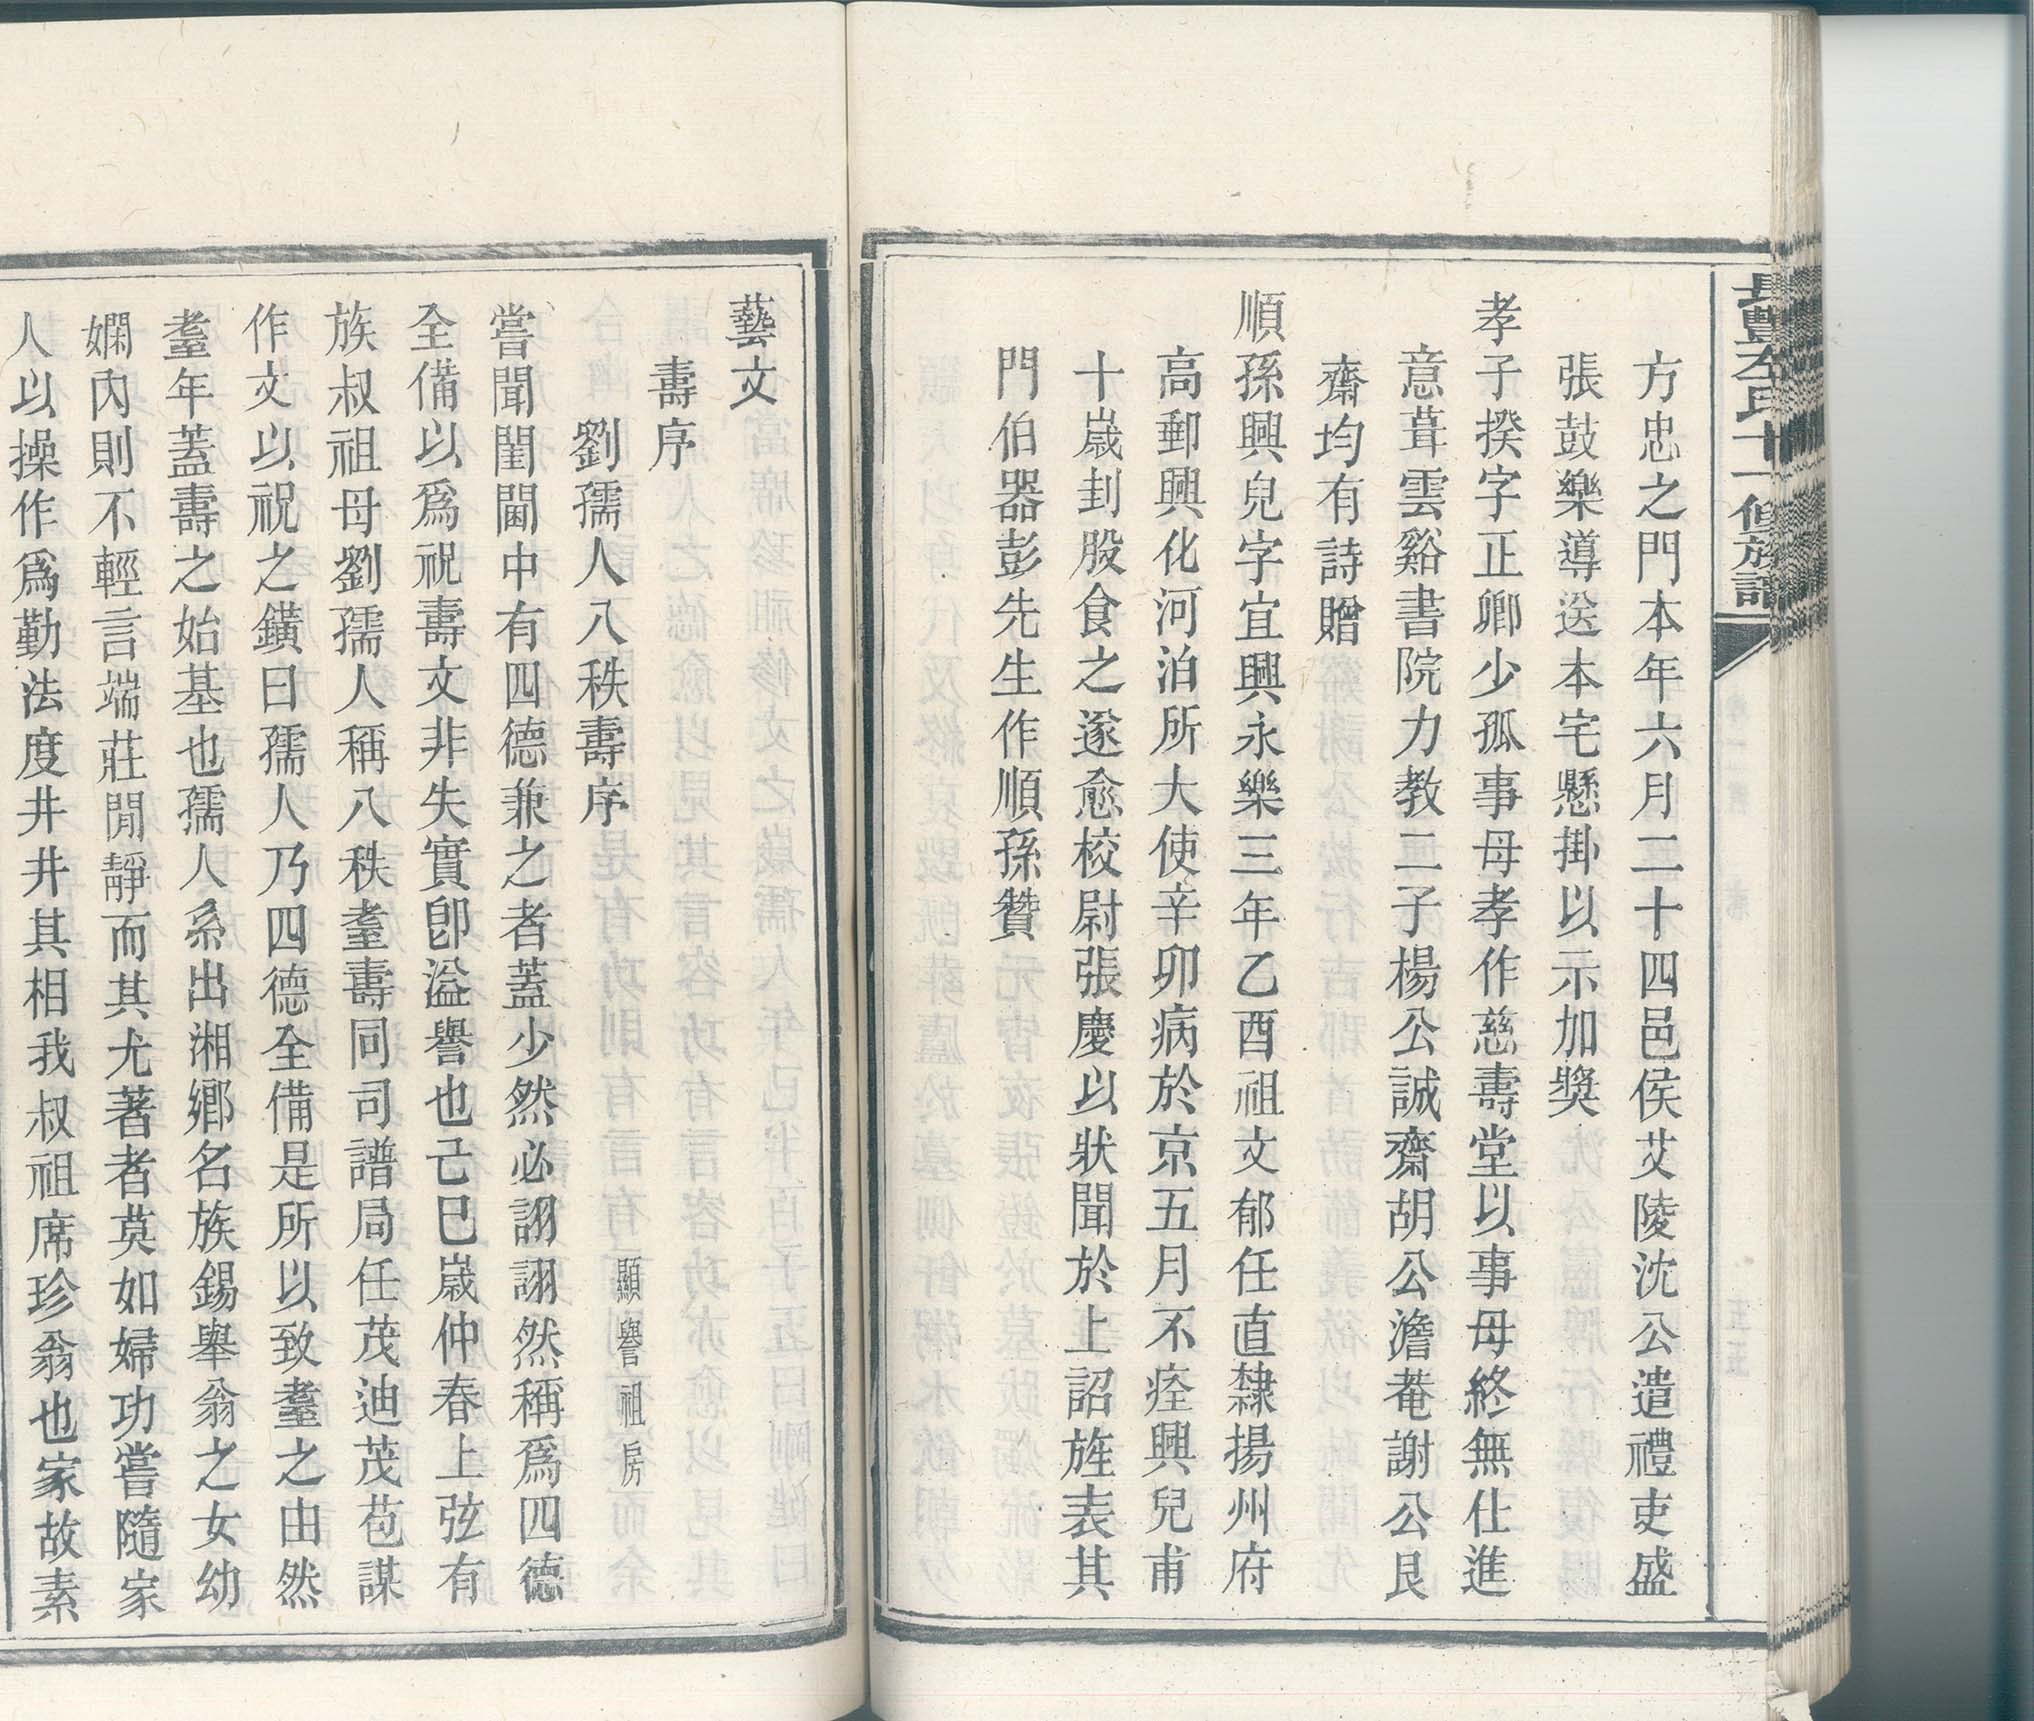 長豐左氏十一修族譜
方忠之門本年六月二十四邑侯艾陵沈公遣禮吏盛
張鼓樂導送本宅懸掛以示加獎
孝子揆字正卿少孤事母孝作慈壽堂以事母終無仕進
意葺雲谿書院力教二子楊公誠齋胡公澹菴謝公艮
齋均有詩贈
順孫興兒字宜興永樂三年乙酉祖文郁任直隸揚州府
高郵興化河泊所大使辛卯病於京五月不痊興兒甫
十歲刲股食之遂愈校尉張慶以狀聞於上詔旌表其
門伯器彭先生作順孫贊
藝文
壽序
劉孺人八秩壽序 顯譽祖房
嘗聞閨閫中有四德兼之者蓋少然必詡詡然稱爲四德
全備以爲祝壽文非失實卽溢譽也己巳歲仲春上弦有
族叔祖母劉孺人稱八秩耋壽同司譜局任茂迪茂苞謀
作文以祝之鐄曰孺人乃四德全備是所以致耋之由然
耋年蓋壽之始基也孺人系出湘鄉名族錫舉翁之女幼
嫻內則不輕言端莊閒靜而其尤著者莫如婦功嘗隨家
人以操作爲勤法度井井其相我叔祖席珍翁也家故素